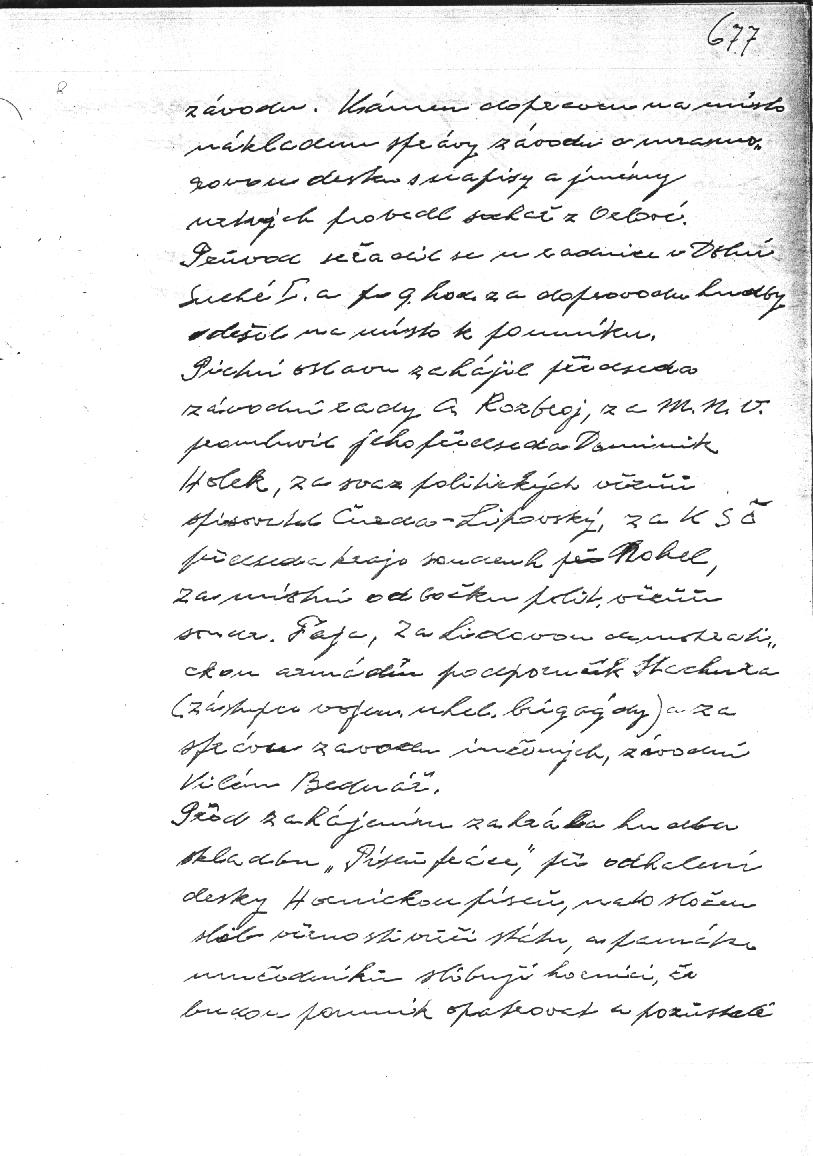 677
závodu. Kámen dopraven na místo
nákladem správy závodu a mramo„
rovou desku s nápisy a jmény
mrtvých provedl sochař z Orlové.
Průvod seřadil se u radnice v Dolní
Suché I. a po 9. hod. za doprovodu hudby
odešel na místo k pomníku.
Pietní oslavu zahájil předseda
závodní rady A. Rozbroj, za M. N. V.
promluvil jeho předseda Dominik
Holek, za svaz politických vězňů
spisovatel Čuda-Lipovský, za K S Č
předseda kraje soudruh Rohel,
za místní odbočku polit. vězňů
soudr. Fája, Za lidovou demokrati„
ckou armádu podporučík Stachura
(zástupce vojen. uhel. brigády) a za
správu zavodu inženýr, závodní
Vilém Bednář.
Před zahájením zahrála hudba
skladbu „Píseň práce,“ při odhalení
desky Hornickou píseň, nato složen
slib věrnosti vůči státu, a památce
umučedníků slibují horníci, že
budou pomník opatrovat a pozůstalé